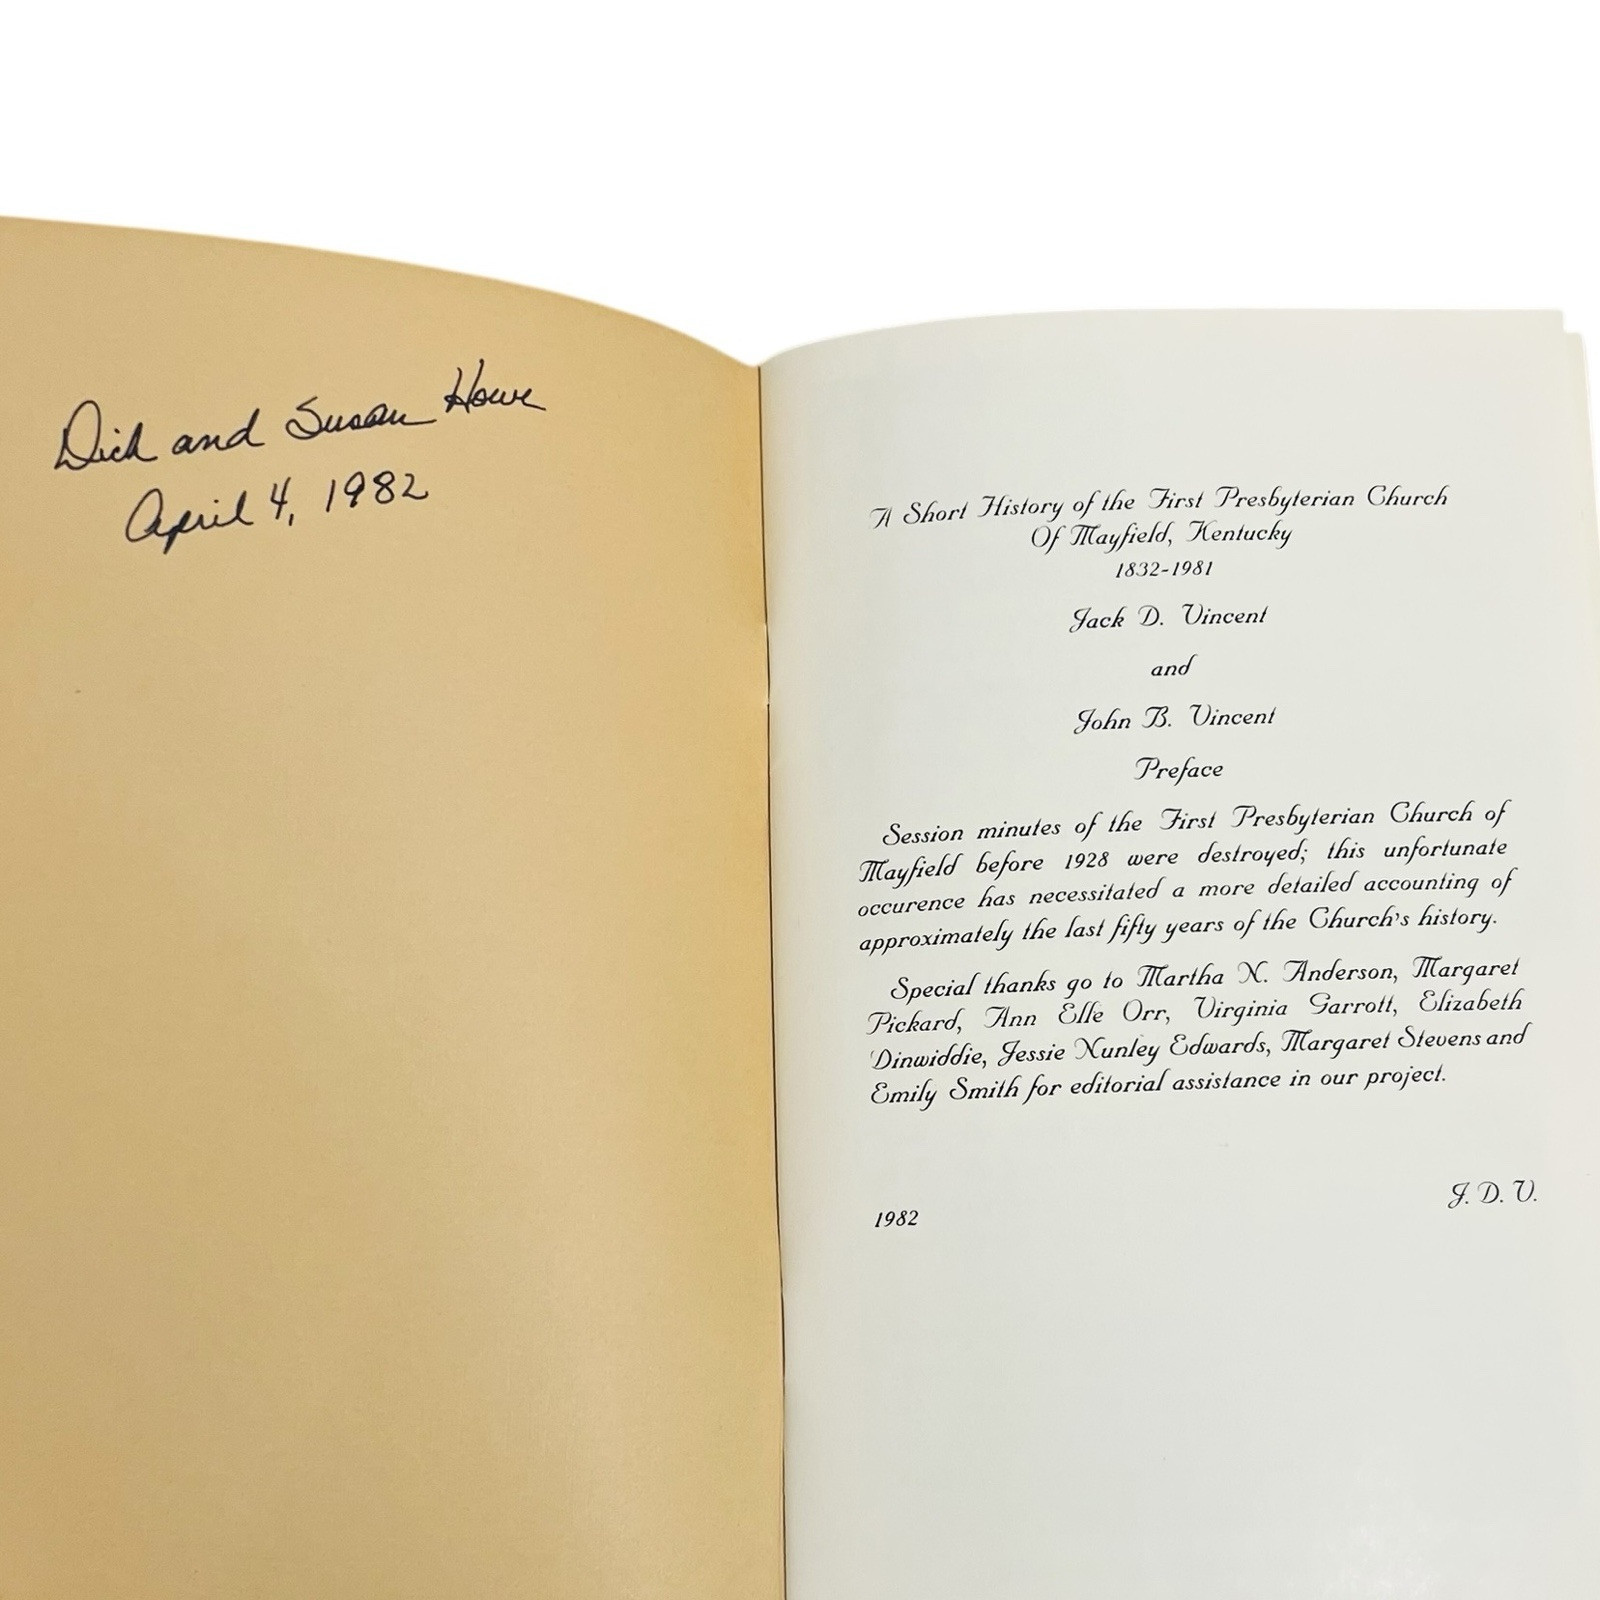 Dick and Susan Howe
April 4, 1982
A Short History of the First Presbyterian Church
Of Mayfield, Kentucky
1832-1981
Jack D. Vincent
and
John B. Vincent
Preface
Session minutes of the First Presbyterian Church of
Mayfield before 1928 were destroyed; this unfortunate
occurence has necessitated a more detailed accounting of
approximately the last fifty years of the Church's history.
Special thanks go to Martha N. Anderson, Margaret
Pickard, Ann Elle Orr, Virginia Garrott, Elizabeth
Dinwiddie, Jessie Nunley Edwards, Margaret Stevens and
Emily Smith for editorial assistance in our project.
J. D. V.
1982